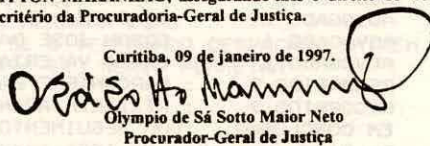 critério da Procuradoria-Geral de Justiça.
Curitiba, 09 de janeiro de 1997.
Olympio de Sá Sotto Maior Neto
Procurador-Geral de Justiça